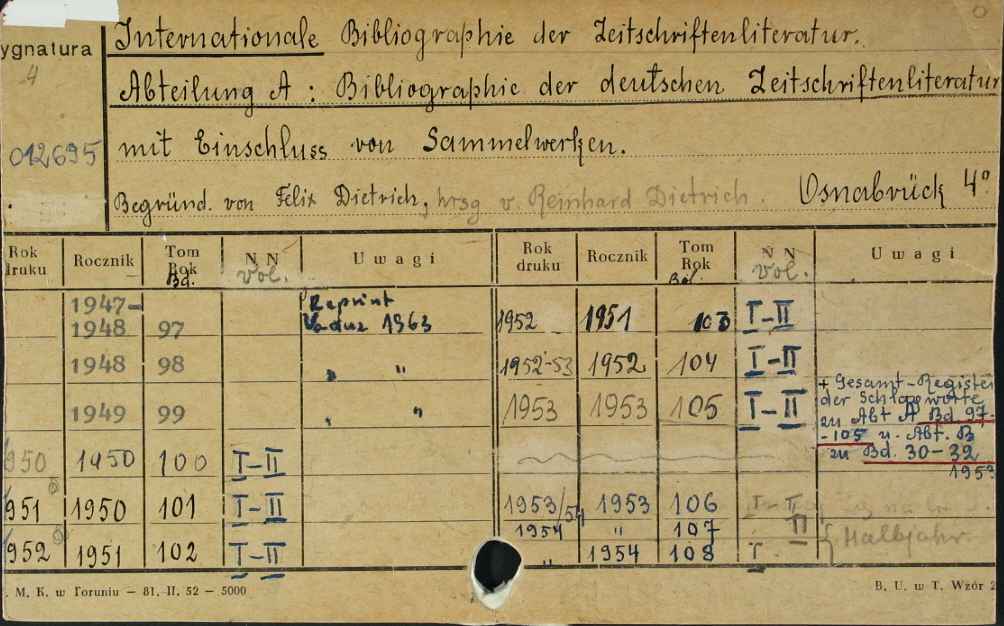 ygnatura
4
012695
Internationale Bibliographie der Zeitschriftenliteratur.
Abteilung A : Bibliographie der deutschen Zeitschriftenliteratur
mit Einschluss von Sammelwerken.
Begründ. von Felix Dietrich, hrsg v. Reinhard Dietrich. Osnabrück 4°
Rok druku Rocznik Tom Rok Bd. N N vol. Uwagi Rok druku Rocznik Tom Rok Bd. N N vol. Uwagi
1947- 1948 97 Reprint Vaduz 1963 1952 1951 103 I-II
1948 98 " " 1952-53 1952 104 I-II
1949 99 " " 1953 1953 105 I-II
+ Gesamt-Register
der Schlagworte
zu Abt A Bd. 97-
-105 u. Abt. B
zu Bd. 30-32
1953
950 1950 100 I-II
951 1950 101 I-II 1953/54 1953 106 I-II
1954 " 107 II
952 1951 102 I-II " 1954 108 I. { Halbjahr.
. M. K. w Toruniu — 81. II. 52 — 5000
B. U. w T. Wzór 2